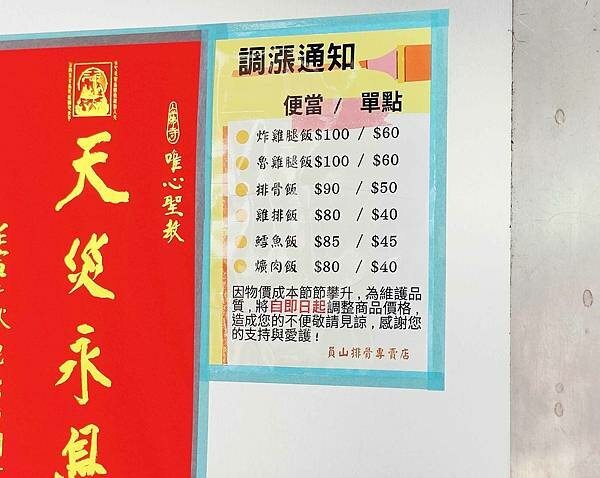 調漲通知
便當 / 單點
炸雞腿飯$100 / $60
魯雞腿飯$100 / $60
排骨飯 $90 / $50
雞排飯 $80 / $40
鱈魚飯 $85 / $45
爌肉飯 $80 / $40
因物價成本節節攀升，為維護品
質，將自即日起調整商品價格，
造成您的不便敬請見諒，感謝您
的支持與愛護！
員山排骨專賣店
唯心聖教
天災永息